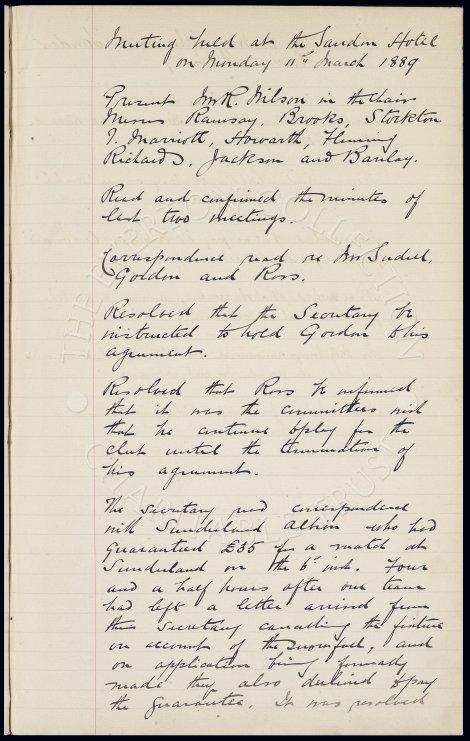 Meeting held at the Sandon Hotel
on Monday 11th March 1889
Present Mr R. Wilson in the chair
Messrs Ramsay, Brooks, Stockton
J. Marriott, Howarth, Fleming
Richards, Jackson and Barclay.
Read and confirmed the minutes of
last two meetings.
Correspondence read re Mr Sudell,
Gordon and Ross.
Resolved that the Secretary be
instructed to hold Gordon to his
agreement.
Resolved that Ross be informed
that it was the committees wish
that he continue to play for the
club until the termination of
his agreement.
The Secretary read correspondence
with Sunderland Albion who had
guaranteed £35 for a match at
Sunderland on the 6th inst. Four
and a half hours after our team
had left a letter arrived from
their Secretary cancelling the fixture
on account of the snowfall, and
on application being formally
made they also declined to pay
the guarantee. It was resolved
THE EVERTON COLLECTION
CHARITABLE TRUST